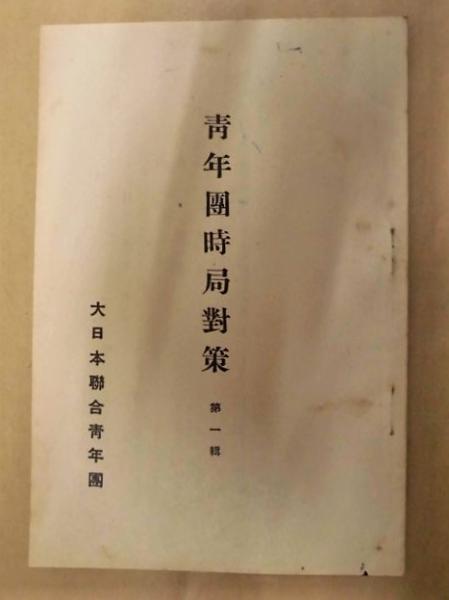 靑年團時局對策
第一輯
大日本聯合靑年團